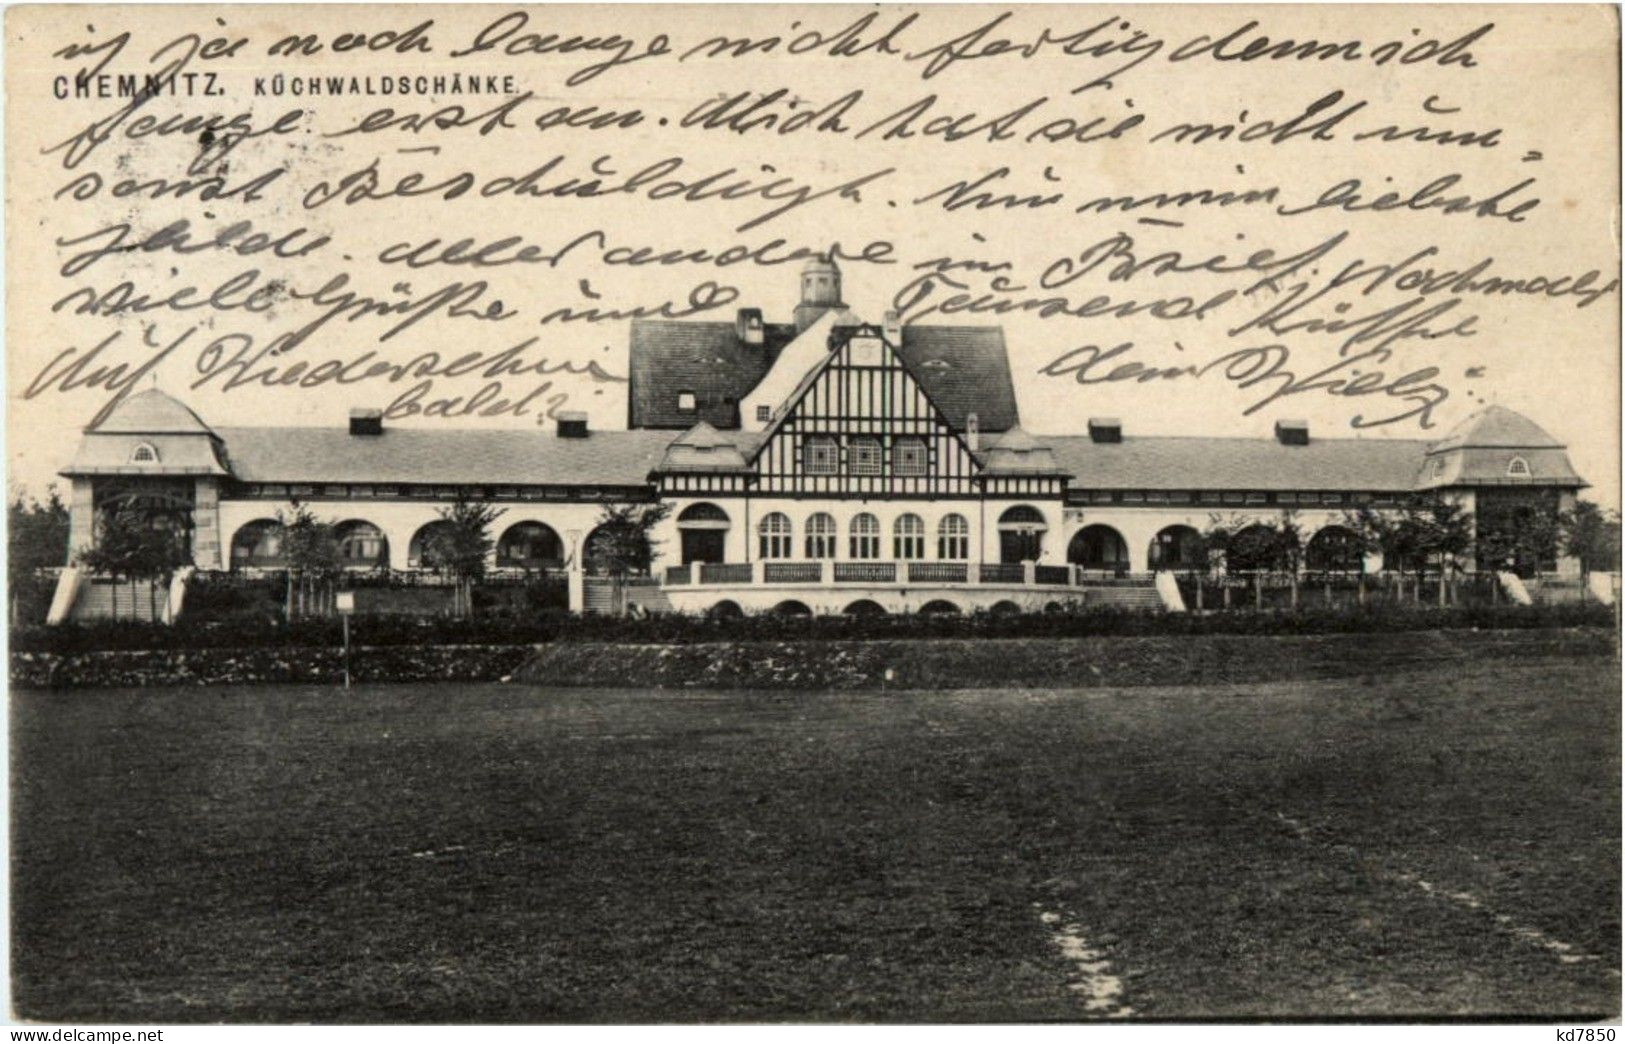 ist ja noch lange nicht fertig denn ich
CHEMNITZ. KÜCHWALDSCHÄNKE.
fange erst an. Mich hat sie nicht um-
sonst Beschuldigt. Nun mein liebste
Hilde. alles andere im Brief. Nochmals
viele Grüße und Tausend Küsse
Auf Wiedersehen dein Willy.
bald?
www.delcampe.net
kd7850